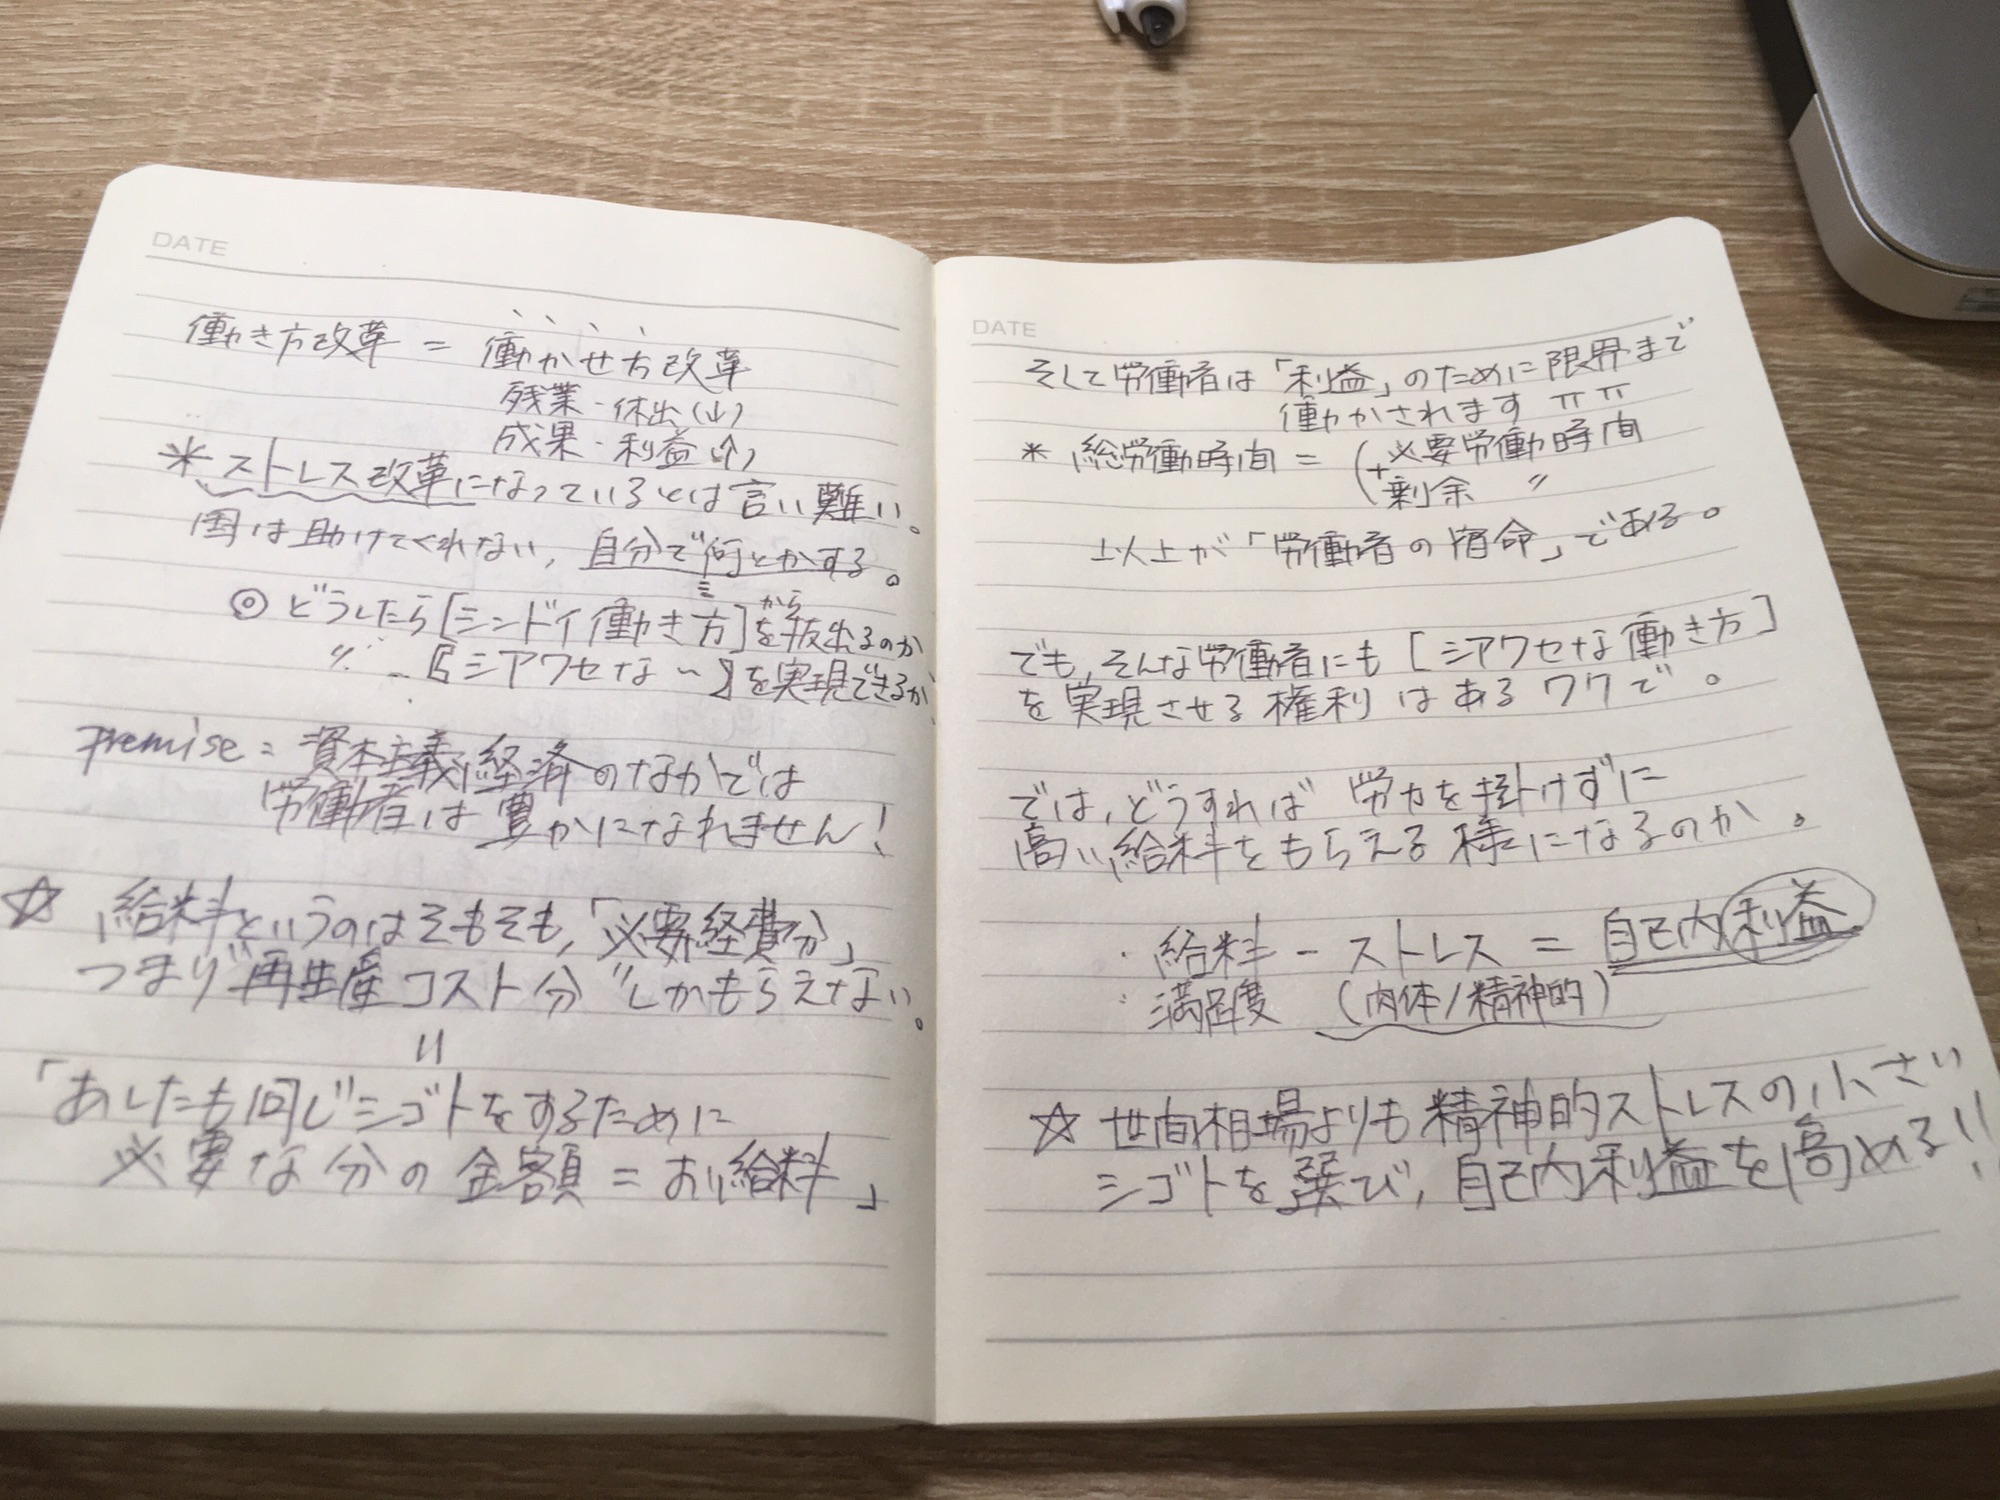 DATE
働き方改革 = 働かせ方改革
残業・休出(↓)
成果・利益(↑)
*ストレス改革になっているとは言い難い。
国は助けてくれない, 自分で何とかする。
◎ どうしたら[シンドイ働き方]を抜出るのか
から
〃 〜 [シアワセな〜]を実現できるか
premise = 資本主義経済のなかでは
労働者は豊かになれません!
☆ 給料というのはそもそも,「必要経費分」
つまり"再生産コスト分"しかもらえない。
||
「あしたも同じシゴトをするために
必要な分の金額=お給料」
DATE
そして労働者は「利益」のために限界まで
働かされます
* 総労働時間 = (必要労働時間
+剰余 〃
以上が「労働者の宿命」である。
でも,そんな労働者にも[シアワセな働き方]
を実現させる権利はあるワケで。
では,どうすれば 労力を掛けずに
高い給料をもらえる様になるのか。
・給料 − ストレス = 自己内利益
満足度 (肉体/精神的)
☆ 世間相場よりも精神的ストレスの小さい
シゴトを選び, 自己内利益を高める!!